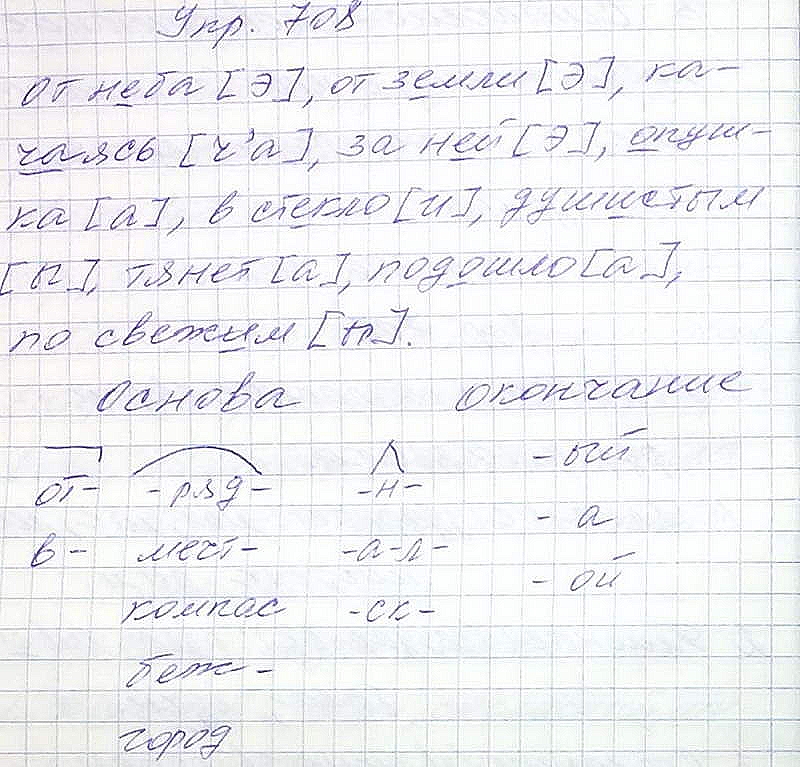 Упр. 708
от неба [э], от земли [э], ка-
чаясь [ч'а], за ней [э], опуш-
ка [а], в стекло [и], душистым
[ы], тянет [а], подошло [а],
по свежим [ы].
Основа окончание
от- -ряд- -н- -ый
в- мечт- -а-л- -а
компас -ск- -ой
беж-
город